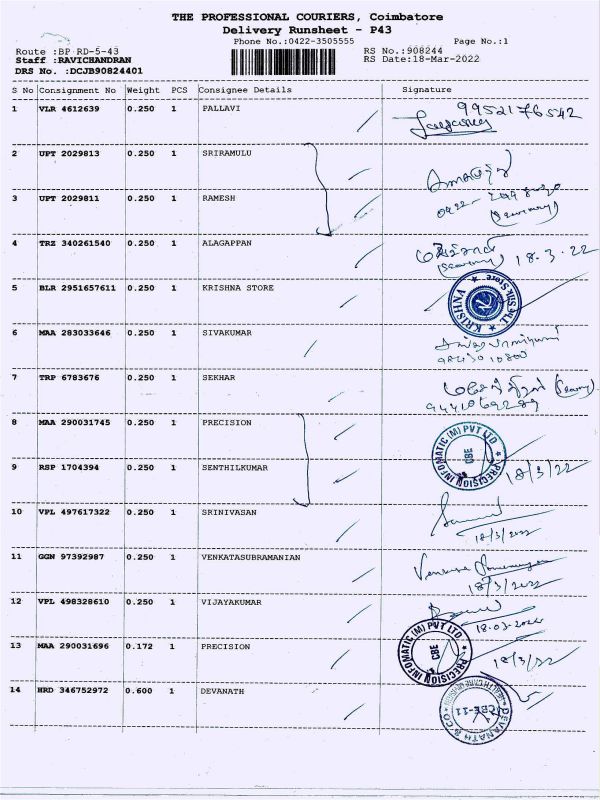 THE PROFESSIONAL COURIERS, Coimbatore
Delivery Runsheet - P43
Phone No.:0422-3505555 Page No.:1
Route :BP RD-5-43 RS No.:908244
Staff :RAVICHANDRAN RS Date:18-Mar-2022
DRS No. :DCJB90824401
S No Consignment No Weight PCS Consignee Details Signature
1 VLR 4612639 0.250 1 PALLAVI 9952176542
2 UPT 2029813 0.250 1 SRIRAMULU
3 UPT 2029811 0.250 1 RAMESH 0422-
4 TRZ 340261540 0.250 1 ALAGAPPAN 18.3.22
5 BLR 2951657611 0.250 1 KRISHNA STORE
KRISHNA Silk Store
6 MAA 283033646 0.250 1 SIVAKUMAR
7 TRP 6783676 0.250 1 SEKHAR
8 MAA 290031745 0.250 1 PRECISION
PRECISION INFOMATIC (M) PVT LTD CBE
9 RSP 1704394 0.250 1 SENTHILKUMAR 18/3/22
10 VPL 497617322 0.250 1 SRINIVASAN
18/3/2022
11 GGN 97392987 0.250 1 VENKATASUBRAMANIAN
18/3/2022
12 VPL 498328610 0.250 1 VIJAYAKUMAR
18.03.2022
13 MAA 290031696 0.172 1 PRECISION 18/3/22
PRECISION INFOMATIC (M) PVT LTD CBE
14 HRD 346752972 0.600 1 DEVANATH
DEVANATH & CO CBE-11